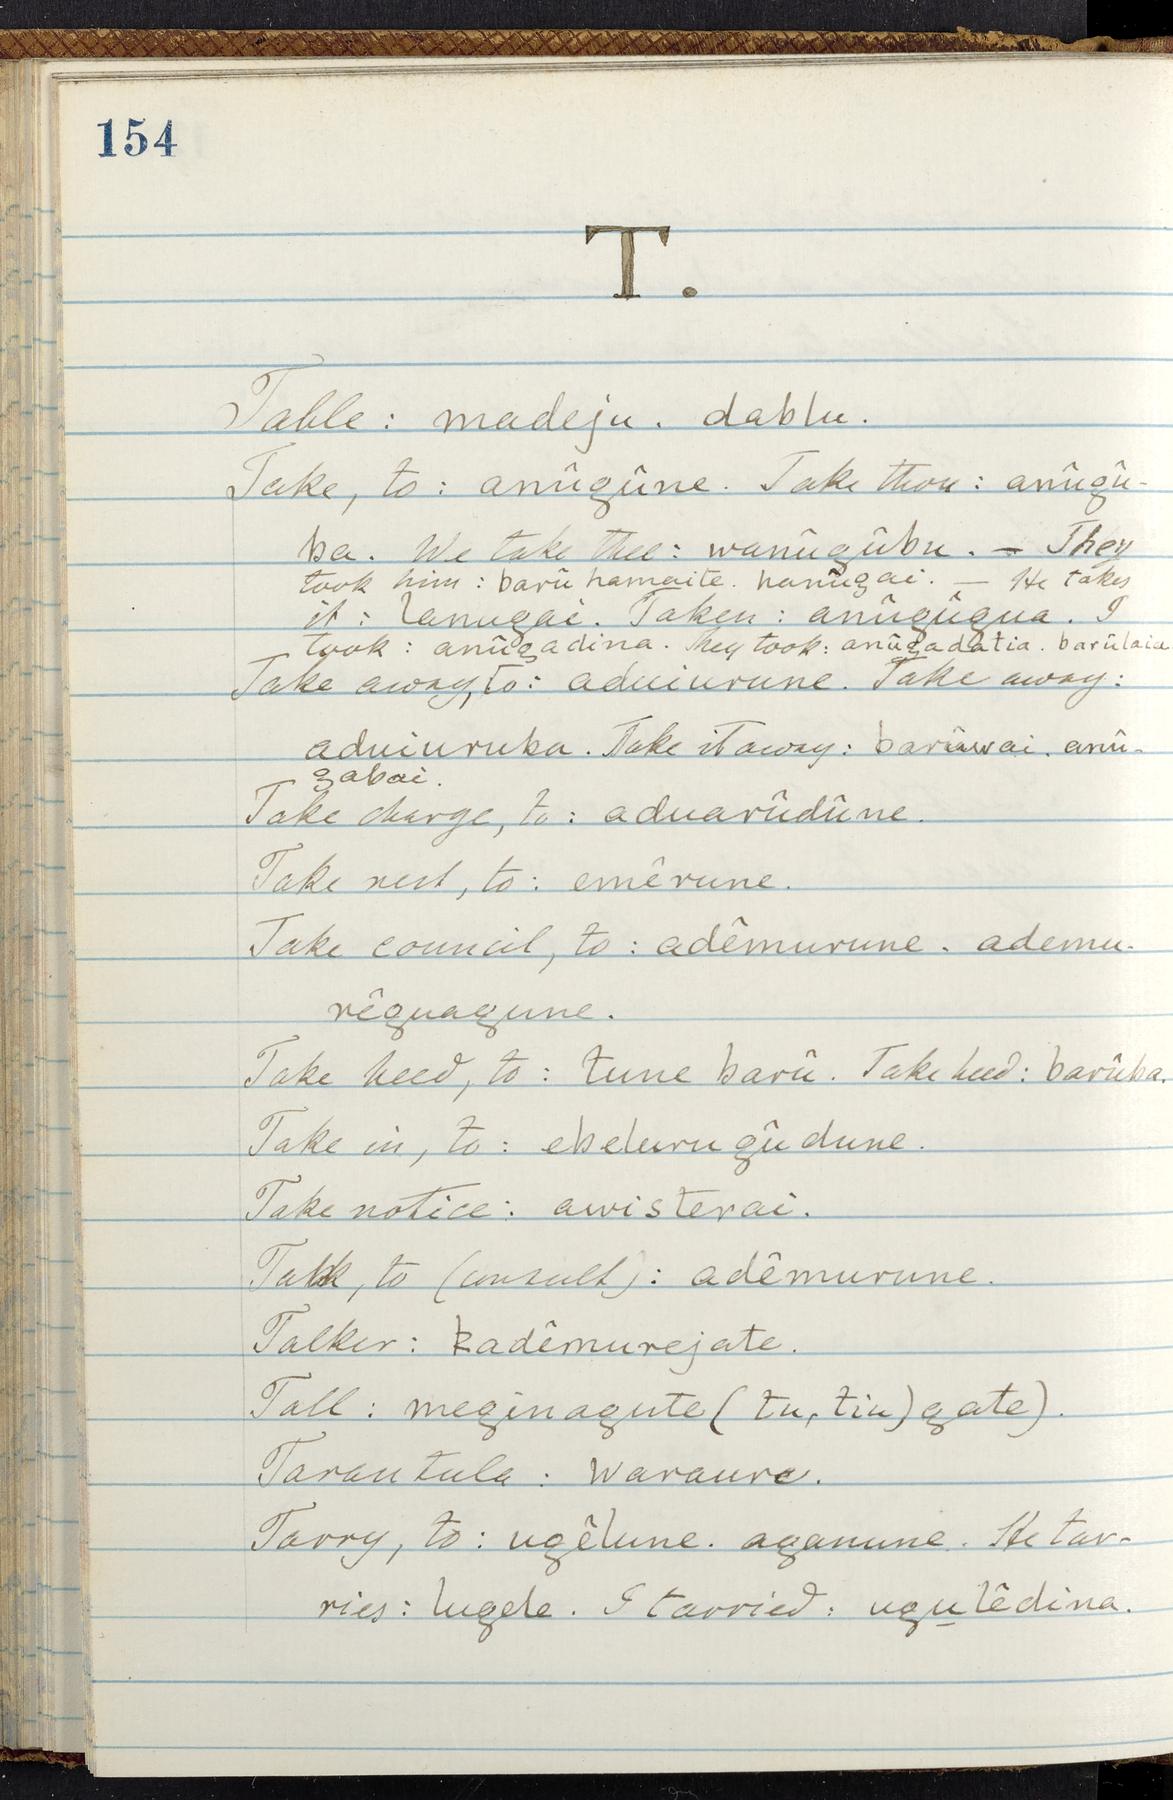 154
T.
Table: madeju. dablu.
Take, to: anûgûne. Take thou: anûgû-
ba. We take thee: wanûgûbu. — They
took him: barû hamaite. hanûgai. — He takes
it: lanugai. Taken: anûgûgua. I
took: anûgadina. They took: anûgadatia. barûlaia
Take away, to: aduiurune. Take away:
aduiuruba. Take it away: barûwai. anû-
gabai.
Take charge, to: aduarûdûne.
Take rest, to: emêrune.
Take council, to: adêmurune. ademu-
rêguagune.
Take heed, to: tune barû. Take heed: barûba.
Take in, to: ebelurugûdune.
Take notice: awisterai.
Talk, to (consult): adêmurune.
Talker: kadêmurejate.
Tall: meginagute (tu, tiu) gate).
Tarantula: waraure.
Tarry, to: ugêlune. aganune. He tar-
ries: lugele. I tarried: ugulêdina.